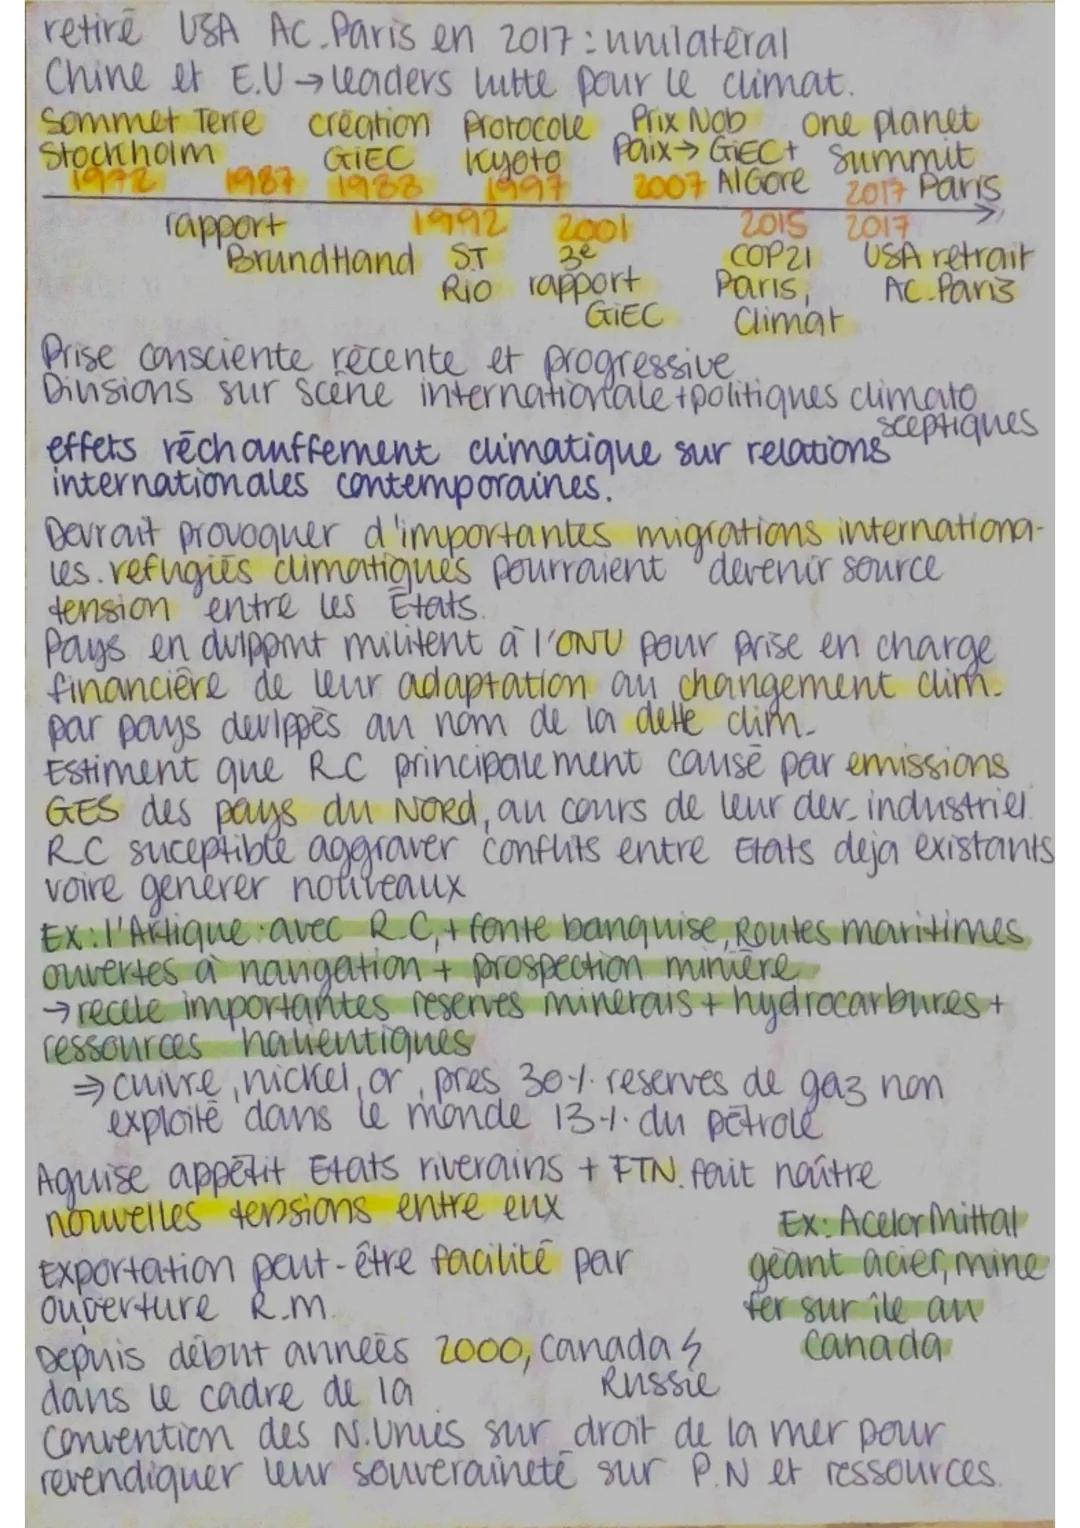 retiré USA AC.Paris en 2017: unilatéral
Chine et E.U → leaders lutte pour le climat.
Sommet Terre création Protocole Prix Nob one planet
Stockholm GIEC Kyoto Paix → GIEC + Summit
1972 1987 1988 1997 2007 Al Gore 2017 Paris
rapport 1992 2001 2015 2017
Brundtland S.T 3e COP21 USA retrait
Rio rapport Paris, AC.Paris
GIEC Climat
Prise consciente récente et progressive
Divisions sur scène internationale + politiques climato
sceptiques
effets réchauffement climatique sur relations
internationales contemporaines.
Devrait provoquer d'importantes migrations internationa-
les. refugiés climatiques pourraient devenir source
tension entre les États.
Pays en dvlppmt militent à l'ONU pour prise en charge
financière de leur adaptation au changement clim.
par pays devlppés au nom de la dette clim.
Estiment que R.C principalement causé par emissions
GES des pays du Nord, au cours de leur dev. industriel.
R.C suceptible aggraver conflits entre Etats deja existants
voire generer nouveaux
Ex: l'Artique: avec R.C, + fonte banquise, Routes maritimes
ouvertes à navigation + prospection minière
→ recele importantes reserves minerais + hydrocarbures +
ressources halientiques
⇒ cuivre, nickel, or, pres 30% reserves de gaz non
exploité dans le monde 13% du pétrole
Aguise appétit Etats riverains + FTN. fait naître
nouvelles tensions entre eux
Ex: AcelorMittal
Exportation peut-être facilité par géant acier, mine
ouverture R.m. fer sur île au
Depuis début années 2000, Canada ϟ Canada
dans le cadre de la Russie
Convention des N.Unies sur droit de la mer pour
revendiquer leur souveraineté sur P.N et ressources.